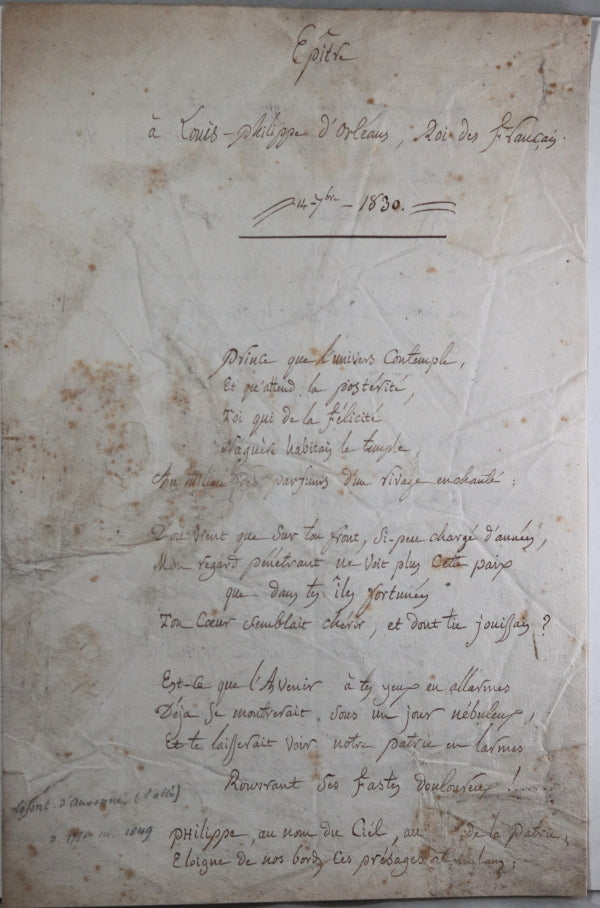 Epître
à Louis-philippe d'Orléans, Roi des français.
14-7bre-1830.
Prince que l'univers Contemple,
Et qu'attend la postérité,
Toi qui de la félicité
Naguère habitais le temple,
Au milieu des parfums d'un rivage enchanté :
D'où vient que sur ton front, si-peu chargé d'années,
Mon regard pénétrant ne voit plus Cette paix
que dans tes îles fortunées
Ton Cœur semblait chérir, et dont tu jouissais ?
Est-Ce que l'Avenir à tes yeux en allarmes
Déja Se montrerait sous un jour nébuleux,
Et te laisserait voir notre patrie en larmes
Rouvrant Ses fastes douloureux !......
(l'abbé)
1849
PHilippe, au nom du Ciél, au de la patrie,
Eloigne de nos bords Ces présages